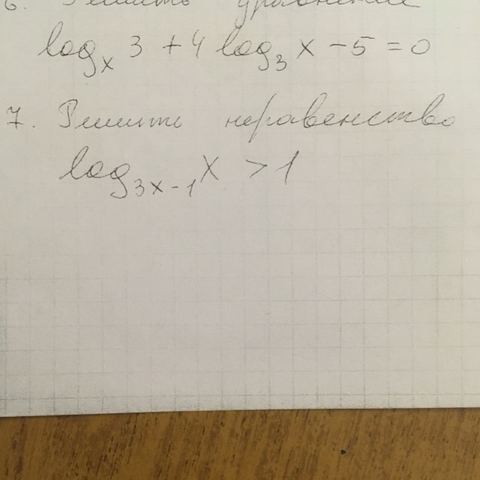 6. Решить уравнение
log_x 3 + 4 log_3 x - 5 = 0
7. Решить неравенство
log_{3x-1} x > 1